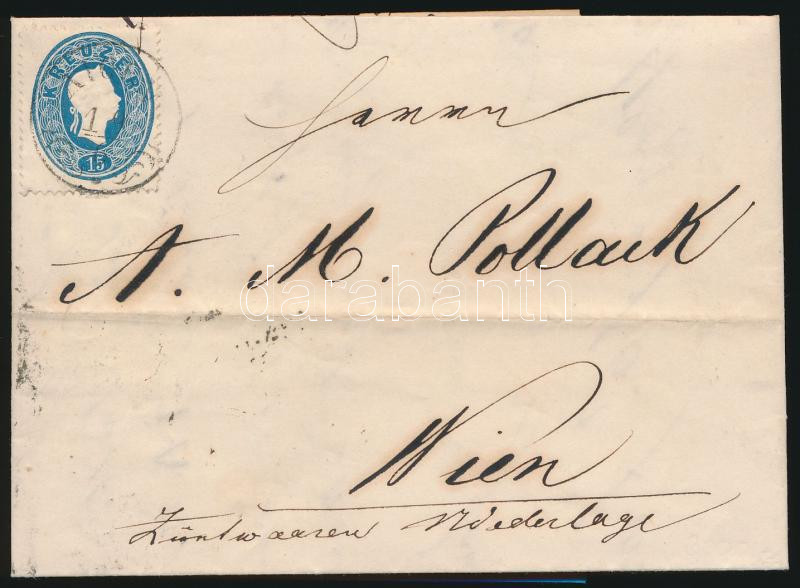 KREUZER
15
Herrn
A. M. Pollack
darabanth
Wien
Züntwaaren Niederlage